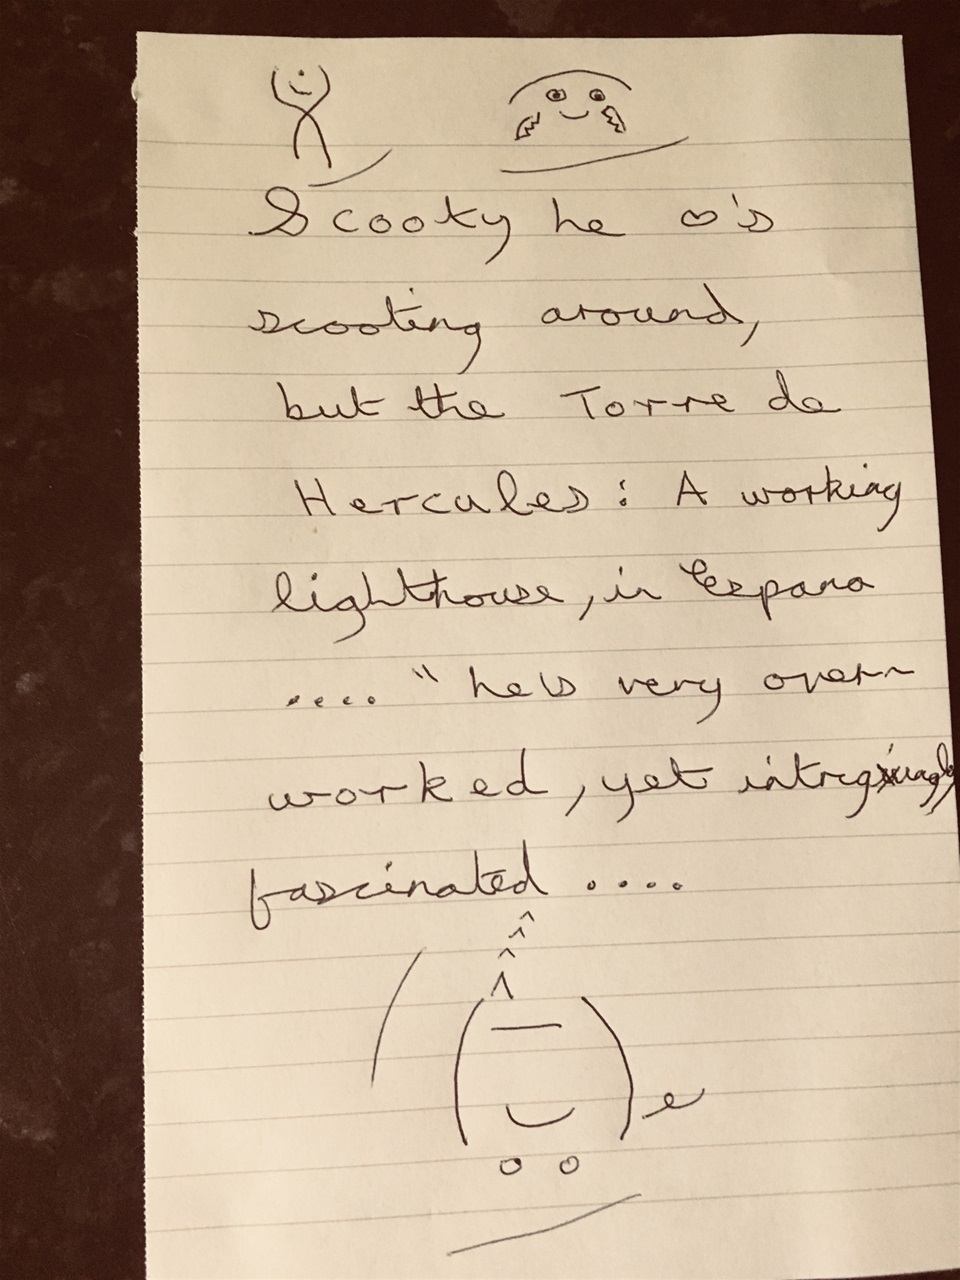 Scooty he ♡'s
scooting around,
but the Torre de
Hercules: A working
lighthouse, in Espana
.... " he's very over-
worked, yet
fascinated ....